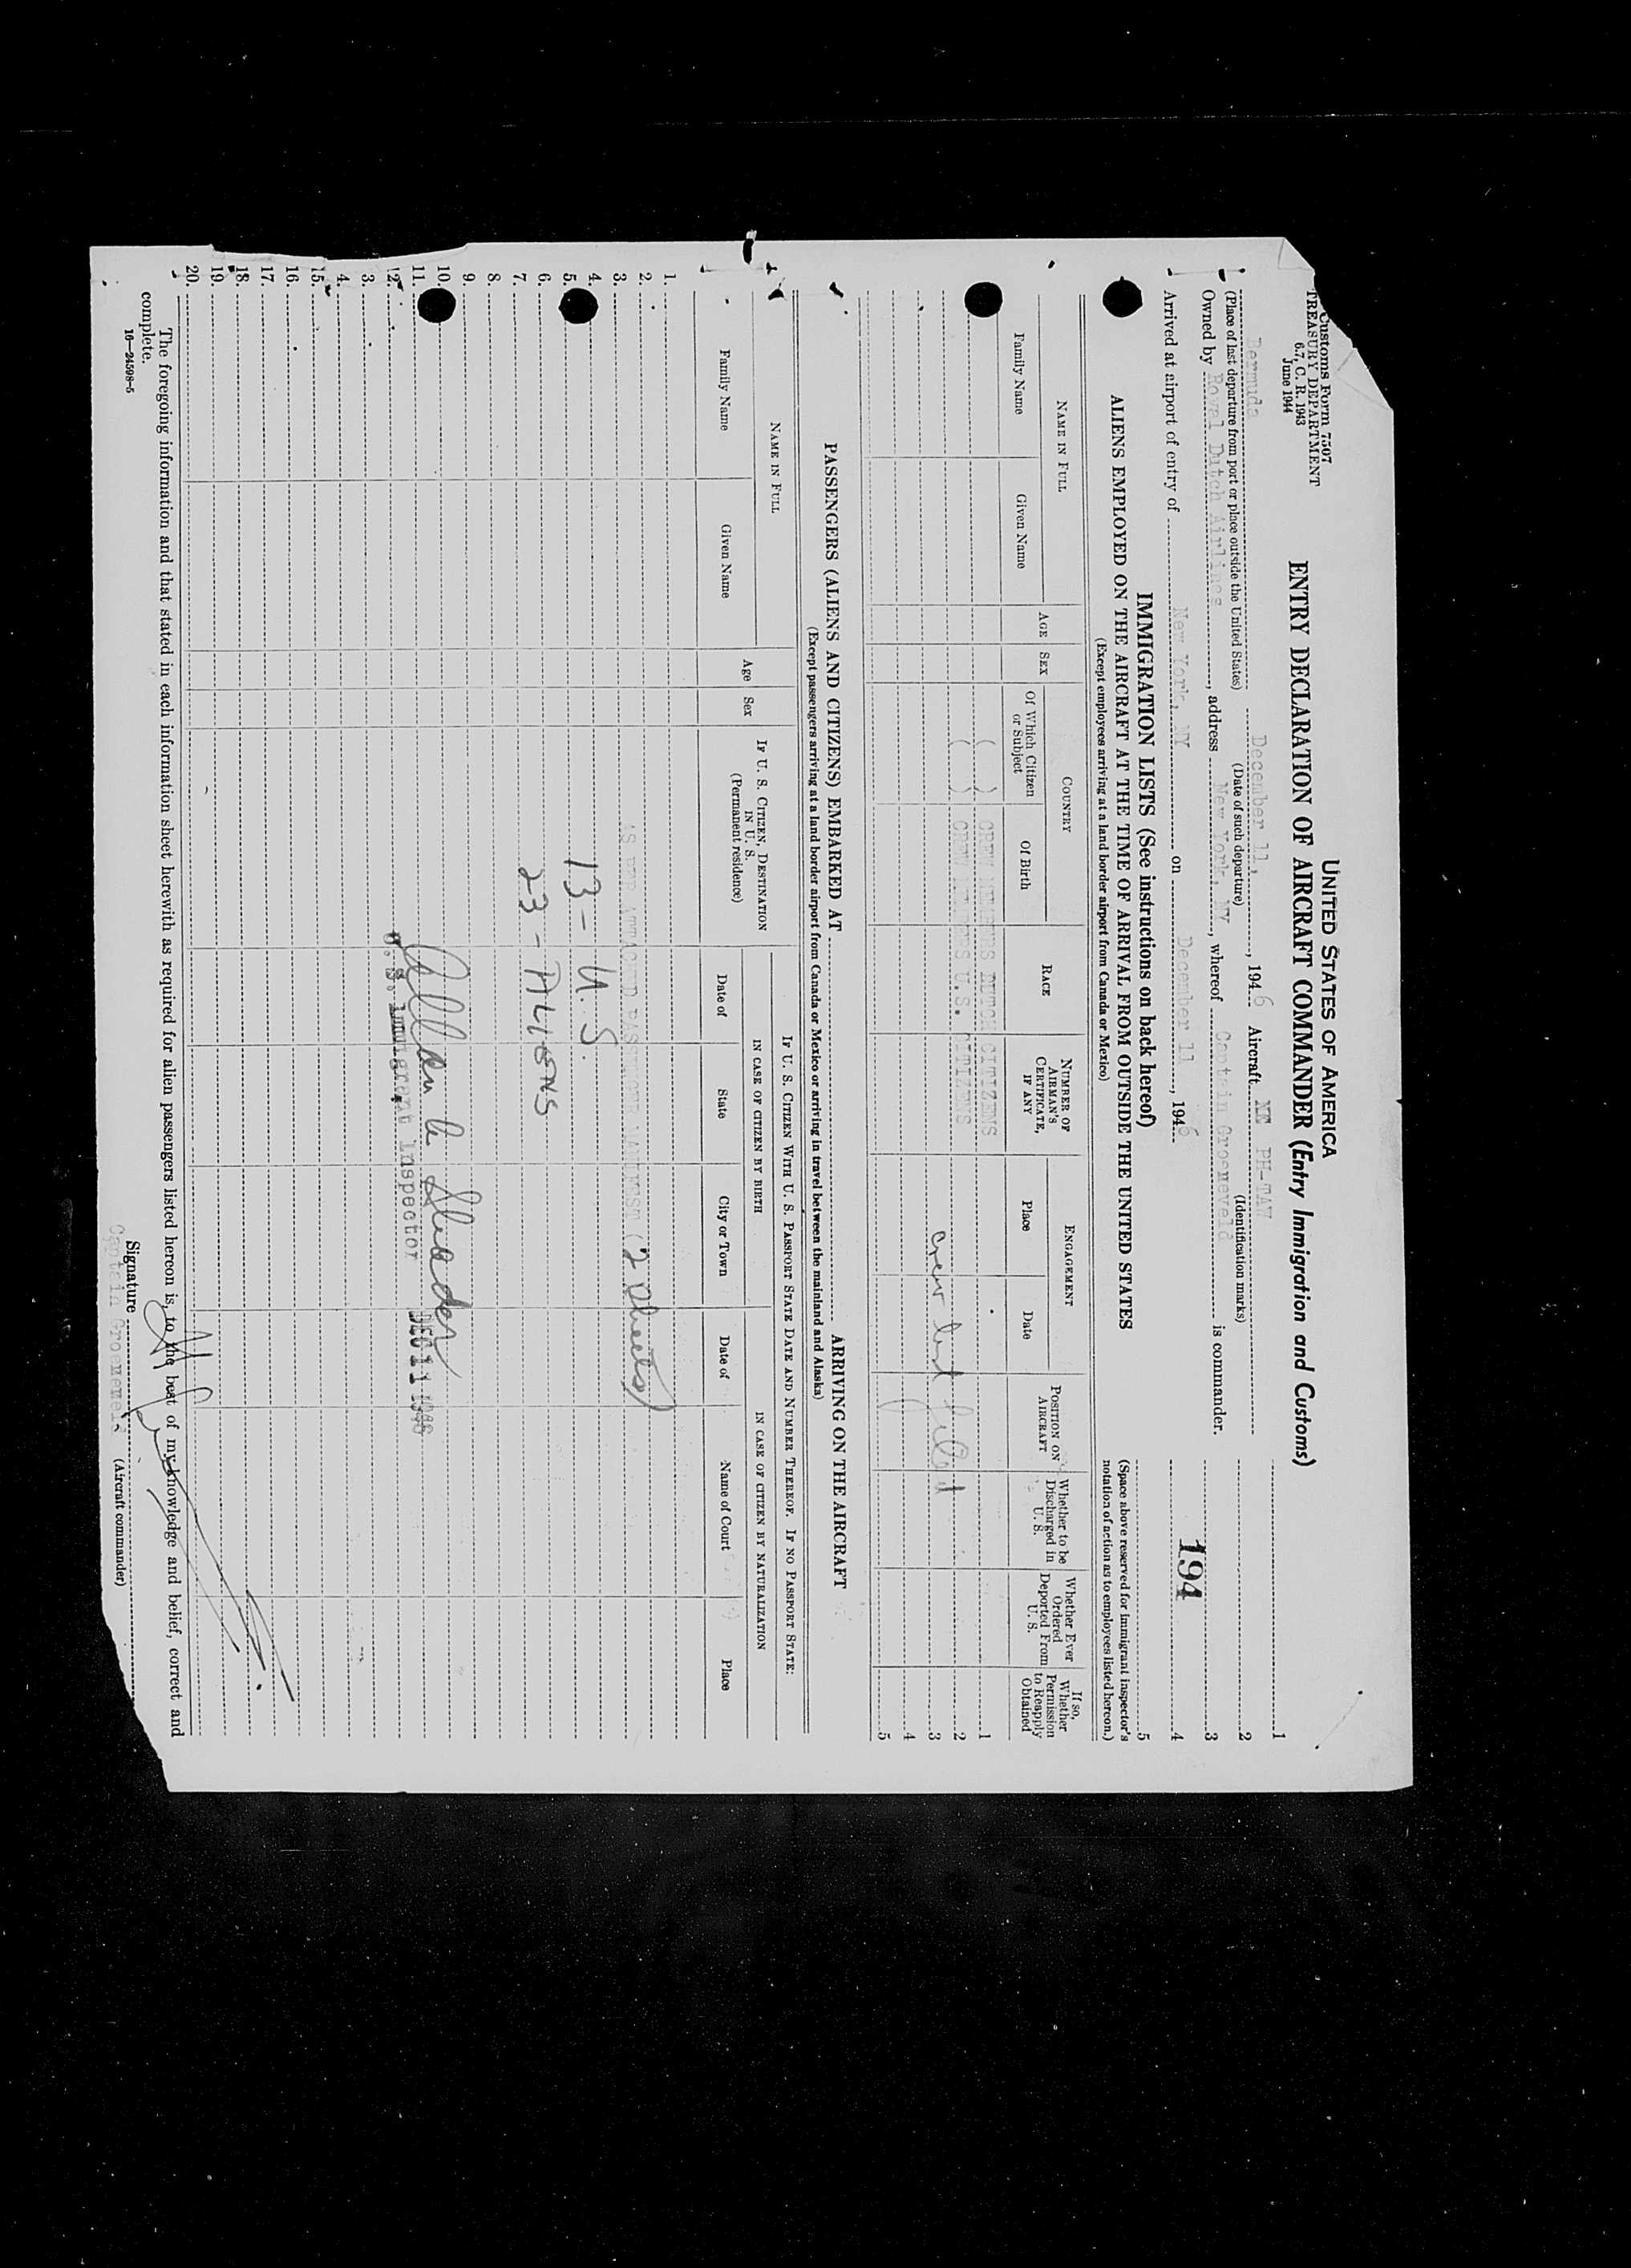 Customs Form 7507
TREASURY DEPARTMENT
6.7, C. R. 1943
June 1944
UNITED STATES OF AMERICA
ENTRY DECLARATION OF AIRCRAFT COMMANDER (Entry Immigration and Customs)
1
Bermuda December 11, , 1946 Aircraft PH-TAW 2
(Place of last departure from port or place outside the United States) (Date of such departure) (Identification marks)
Owned by Royal Dutch Airlines , address New York, NY , whereof Captain is commander. 3
Arrived at airport of entry of New York, NY on December 11 , 1946 4
194
5
IMMIGRATION LISTS (See instructions on back hereof)
(Space above reserved for immigrant inspector's notation of action as to employees listed hereon.)
ALIENS EMPLOYED ON THE AIRCRAFT AT THE TIME OF ARRIVAL FROM OUTSIDE THE UNITED STATES
(Except employees arriving at a land border airport from Canada or Mexico)
NAME IN FULL
Family Name
Given Name
AGE
SEX
COUNTRY
Of Which Citizen or Subject
Of Birth
RACE
NUMBER OF AIRMAN'S CERTIFICATE, IF ANY
ENGAGEMENT
Place
Date
POSITION ON AIRCRAFT
Whether to be Discharged in U. S.
Whether Ever Ordered Deported From U. S.
If so, Whether Permission to Reapply Obtained
( ) CREW MEMBERS DUTCH CITIZENS 1
( ) CREW MEMBERS U.S. CITIZENS 2
Crew list filed 3
4
5
PASSENGERS (ALIENS AND CITIZENS) EMBARKED AT ARRIVING ON THE AIRCRAFT
(Except passengers arriving at a land border airport from Canada or Mexico or arriving in travel between the mainland and Alaska)
NAME IN FULL
Family Name
Given Name
Age
Sex
IF U. S. CITIZEN, DESTINATION IN U. S.
(Permanent residence)
IF U. S. CITIZEN WITH U. S. PASSPORT STATE DATE AND NUMBER THEREOF. IF NO PASSPORT STATE:
IN CASE OF CITIZEN BY BIRTH
Date of
State
City or Town
IN CASE OF CITIZEN BY NATURALIZATION
Date of
Name of Court
Place
1.
2.
3. AS PER ATTACHED PASSENGER (2 sheets)
4.
5. 13 - U. S.
6.
7. 23 - ALIENS
8.
9.
10.
11. Allan
12. U.S. Immigrant Inspector DEC 11 1946
3.
4.
15.
16.
17.
18.
19.
20.
The foregoing information and that stated in each information sheet herewith as required for alien passengers listed hereon is, to the best of my knowledge and belief, correct and
complete.
16—24598-5
Signature
Captain (Aircraft commander)